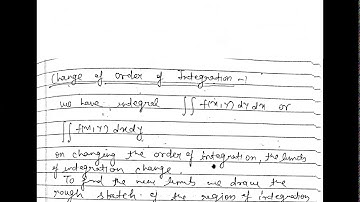 Change of order of Integration -:
we have integral ∬ f(x,y) dy dx or
∬ f(x,y) dx dy
on changing the order of integration, the limits
of integration change.
To find the new limits we draw the
rough sketch of the region of integration